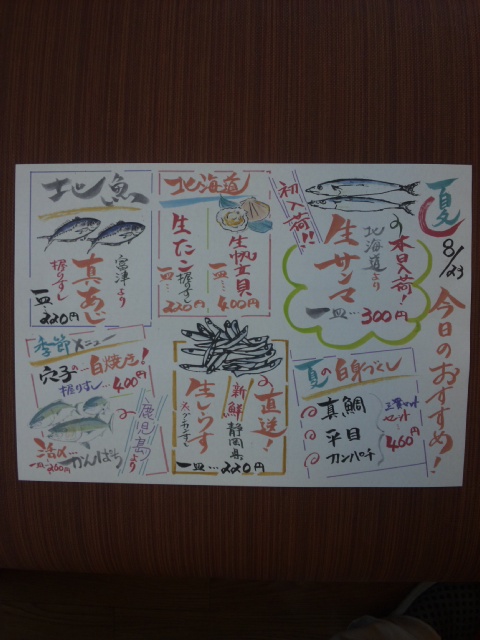 夏
8/23
今日のおすすめ!
初入荷!!
本日入荷!
北海道より
生サンマ
一皿…300円
北海道
生帆立貝
一皿…400円
生たこ
握りずし
一皿…220円
地魚
宮津より
真あじ
握りずし
一皿…220円
季節メニュー
穴子の一白焼き!
握りずし…400円
鹿児島より
かんぱち
直送!
新鮮静岡県
生しらす
一皿…220円
夏の白身づくし
真鯛
平目
カンパチ
460円